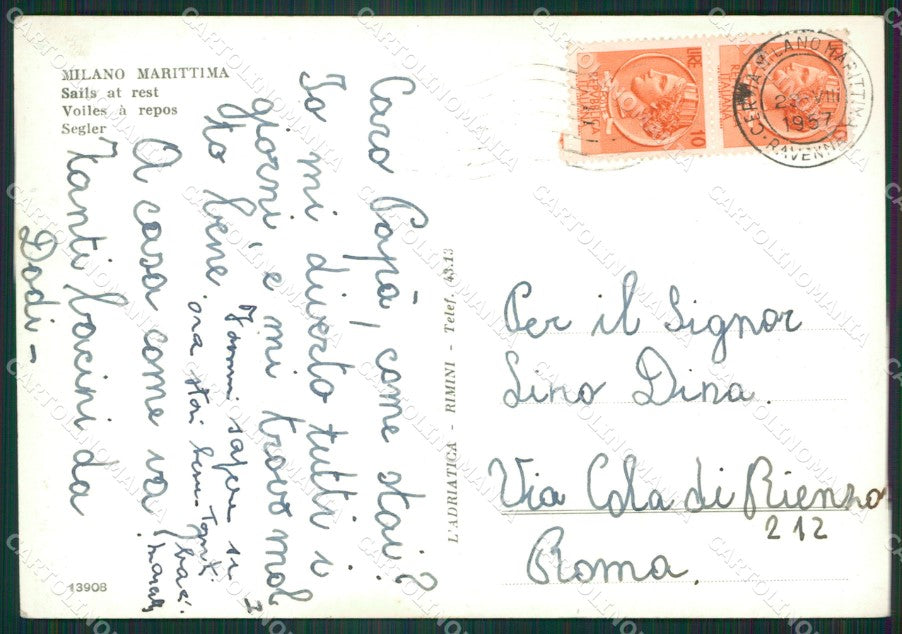 MILANO MARITTIMA
Sails at rest
Voiles à repos
Segler
Caro Papà, come stai?
Io mi diverto tutti i
giorni, e mi trovo mol
to bene.
A casa come va?
Tanti bacini da
Dodi -
Fammi sapere se
ora stai bene
L'ADRIATICA - RIMINI - Telef. 43.13
13908
LIRE 10
REPUBBLICA ITALIANA
CERVIA MILANO MARITTIMA
VIII
1957
RAVENNA
Per il Signor
Lino Dina.
Via Cola di Rienzo
212
Roma.
CARTOLINOMANIA